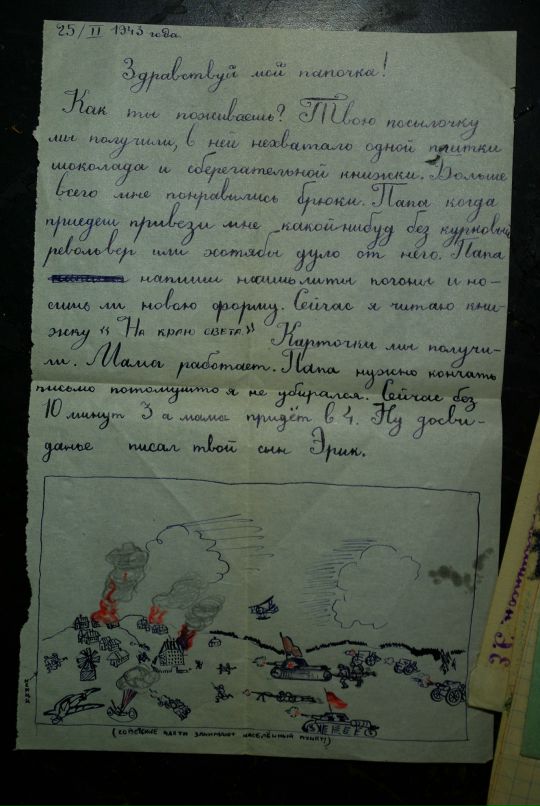 25/II 1943 года.
Здравствуй мой папочка!
Как ты поживаешь? Твою посылочку
мы получили, в ней нехватало одной плитки
шоколада и сберегательной книжки. Больше
всего мне понравились брюки. Папа когда
приедеш привези мне какой-нибуд без курковый
револьвер или хотябы дуло от него. Папа
напиши нашьлиты погоны и но-
сишь ли новою форму. Сейчас я читаю кни-
жку «На краю света» Карточки мы получи-
ли. Мама работает. Папа нужно кончать
письмо потомушто я не убирался. Сейчас без
10 минут 3 а мама придёт в 4. Ну досви-
данье писал твой сын Эрик.
(советские части занимают населённый пункт)